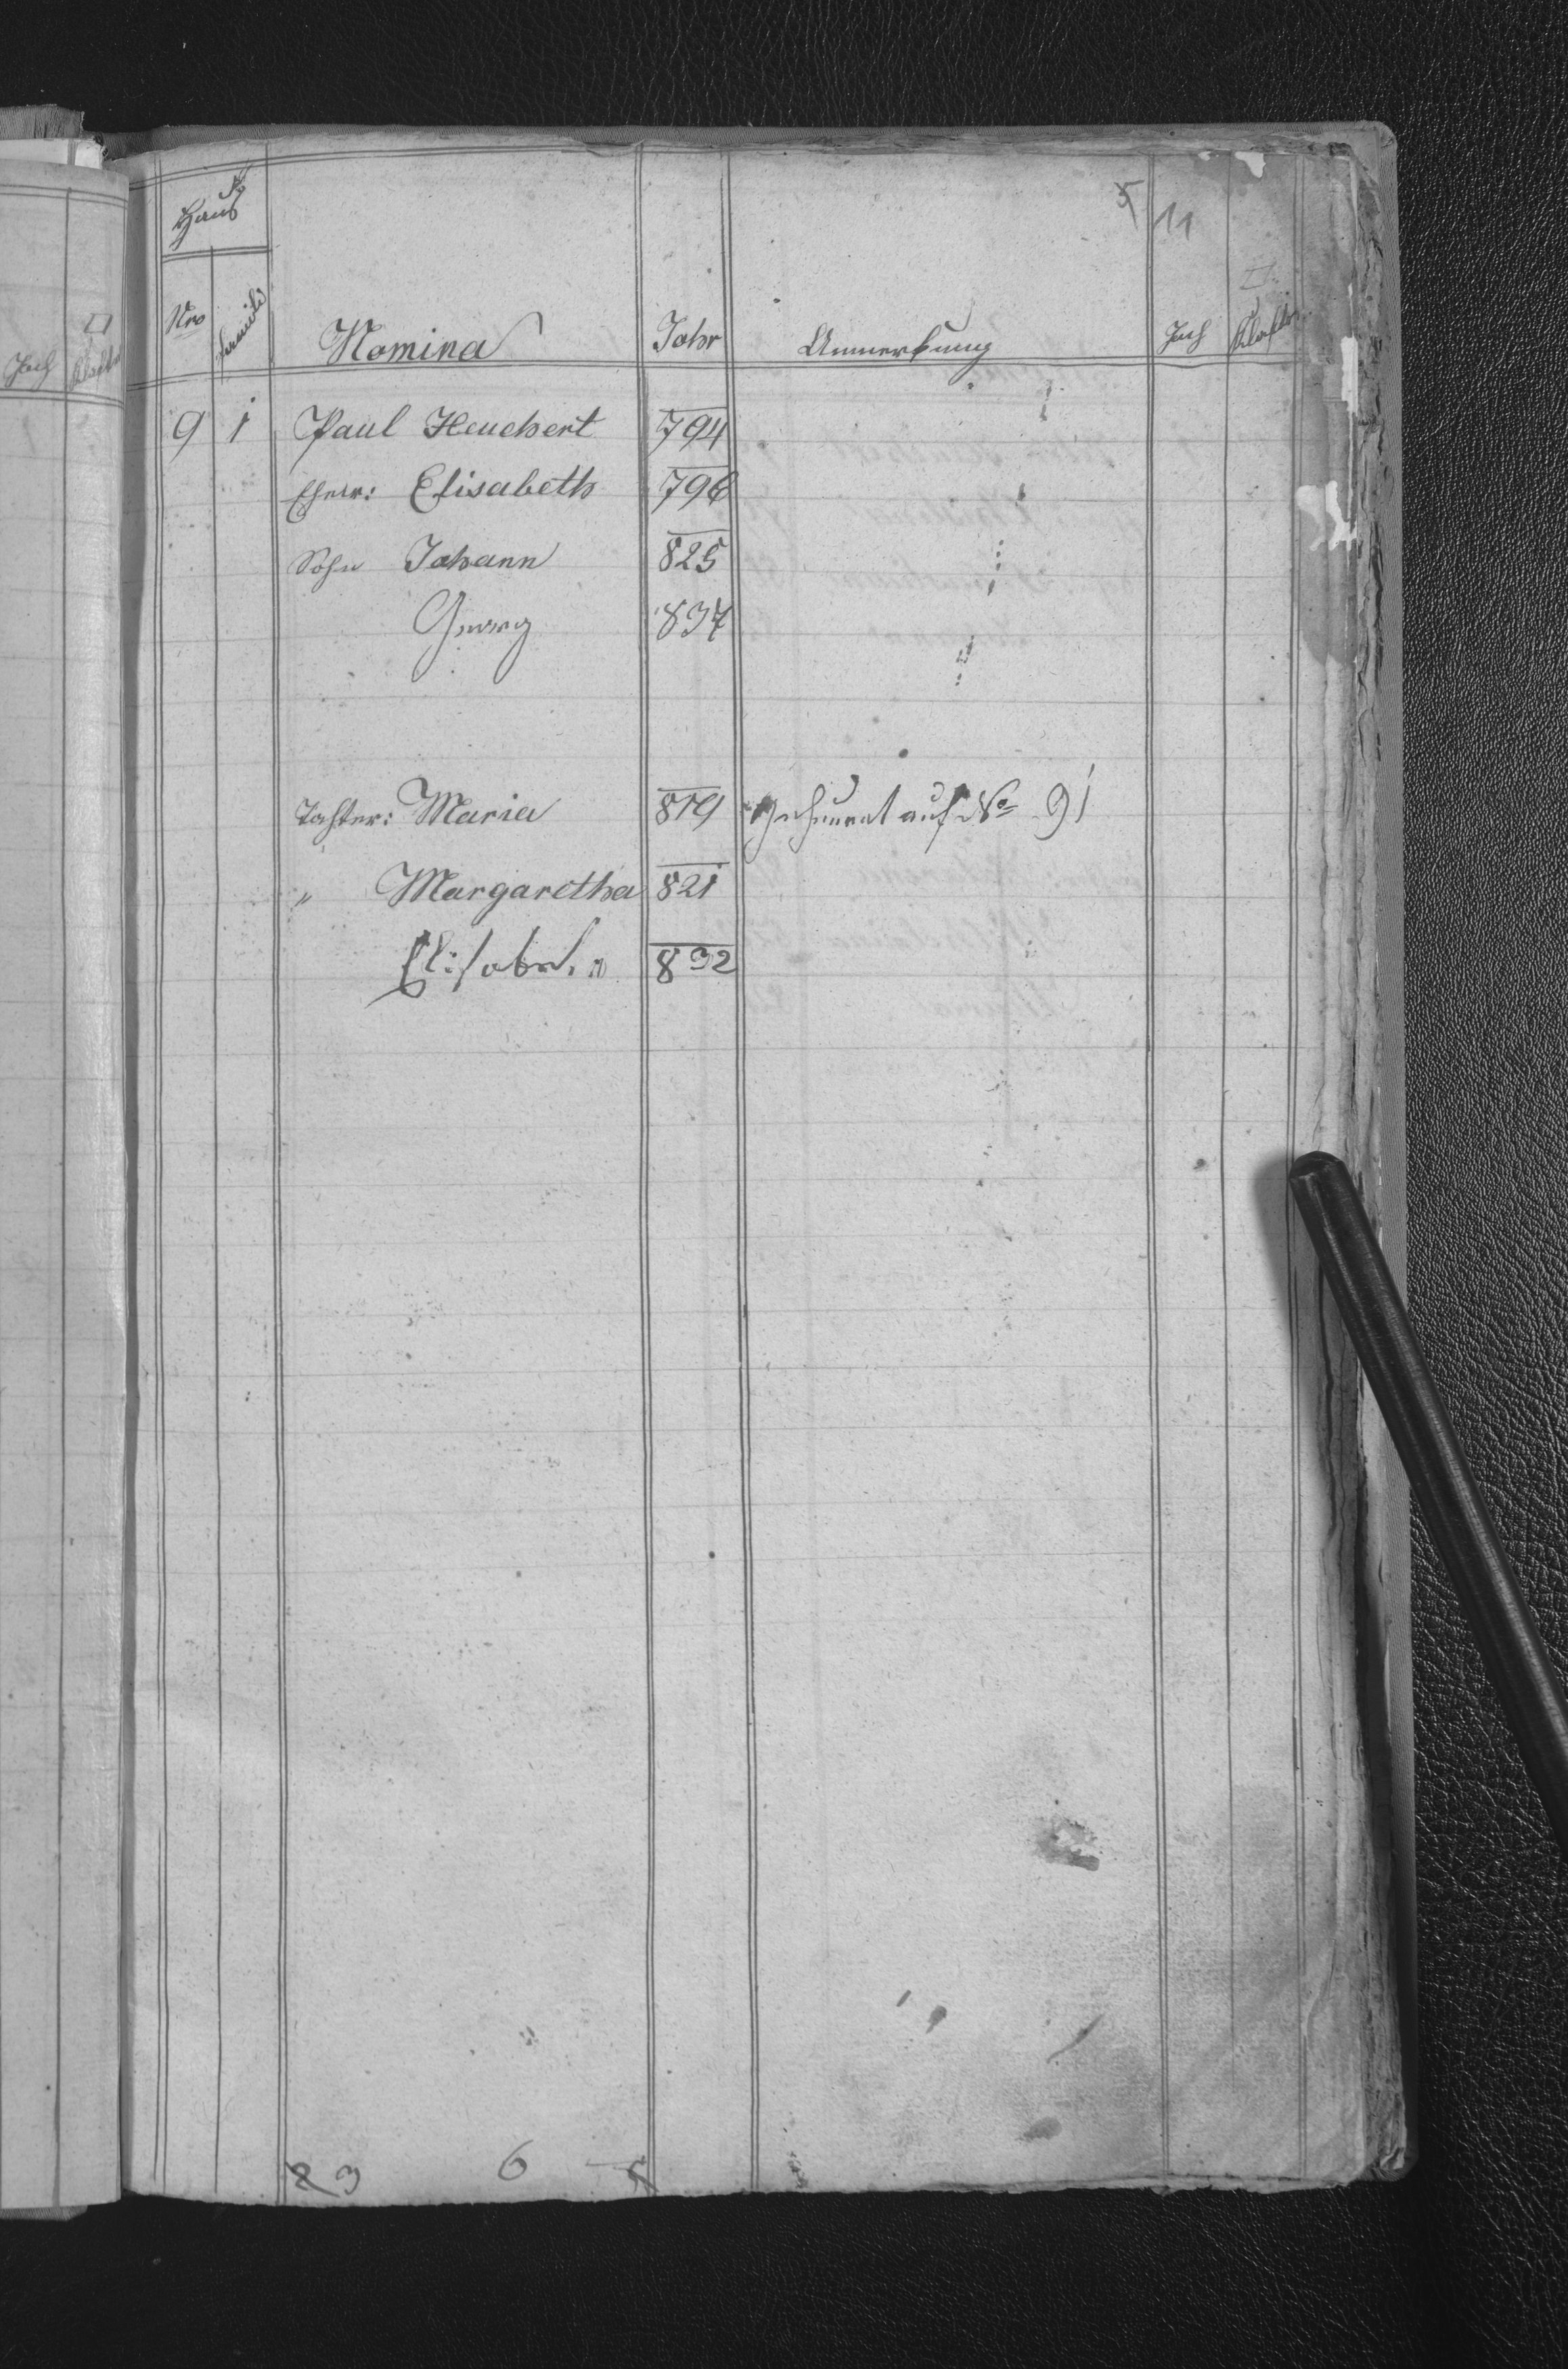 5 11
Haus
Nro Familie Nomina Jahr Anmerkung Joch □ Klafter
9 1 Paul Heuchert 794
Ehew: Elisabeth 796
Sohn Johann 825
Georg 837
Tochter: Maria 819 Geheurat auf No 91
" Margaretha 821
Elisabeth 832
3 6
Joch □ Klafter